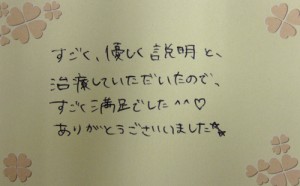 すごく、優しく説明と、
治療していただいたので、
すごく満足でした^^♡
ありがとうございました☆